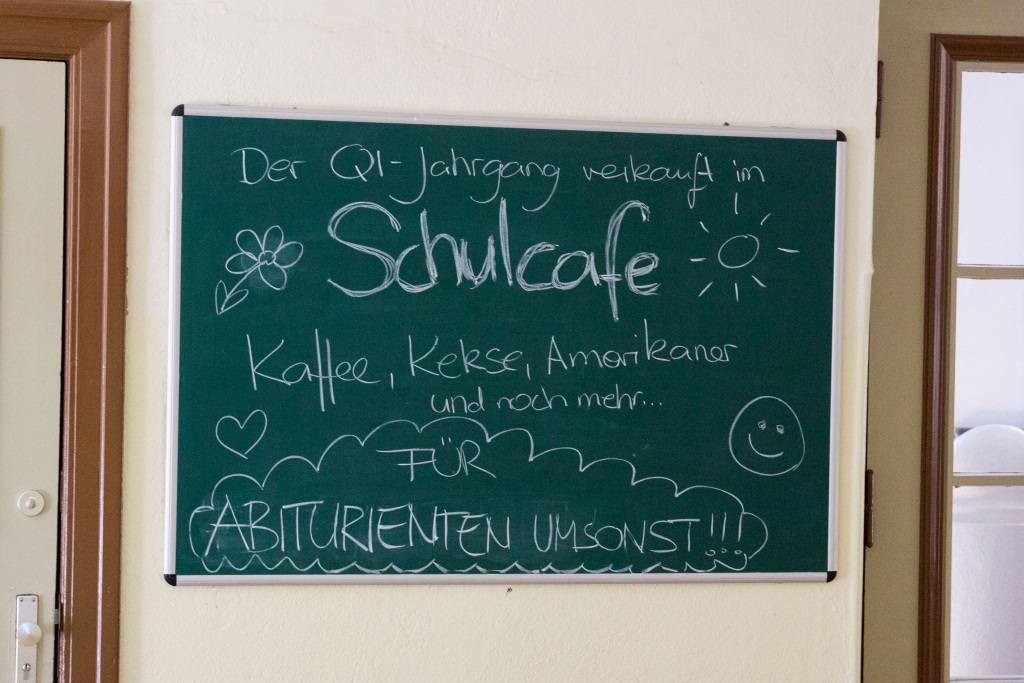 Der Q1-Jahrgang verkauft im
Schulcafe
Kaffee, Kekse, Amerikaner
und noch mehr...
FÜR
ABITURIENTEN UMSONST!!!